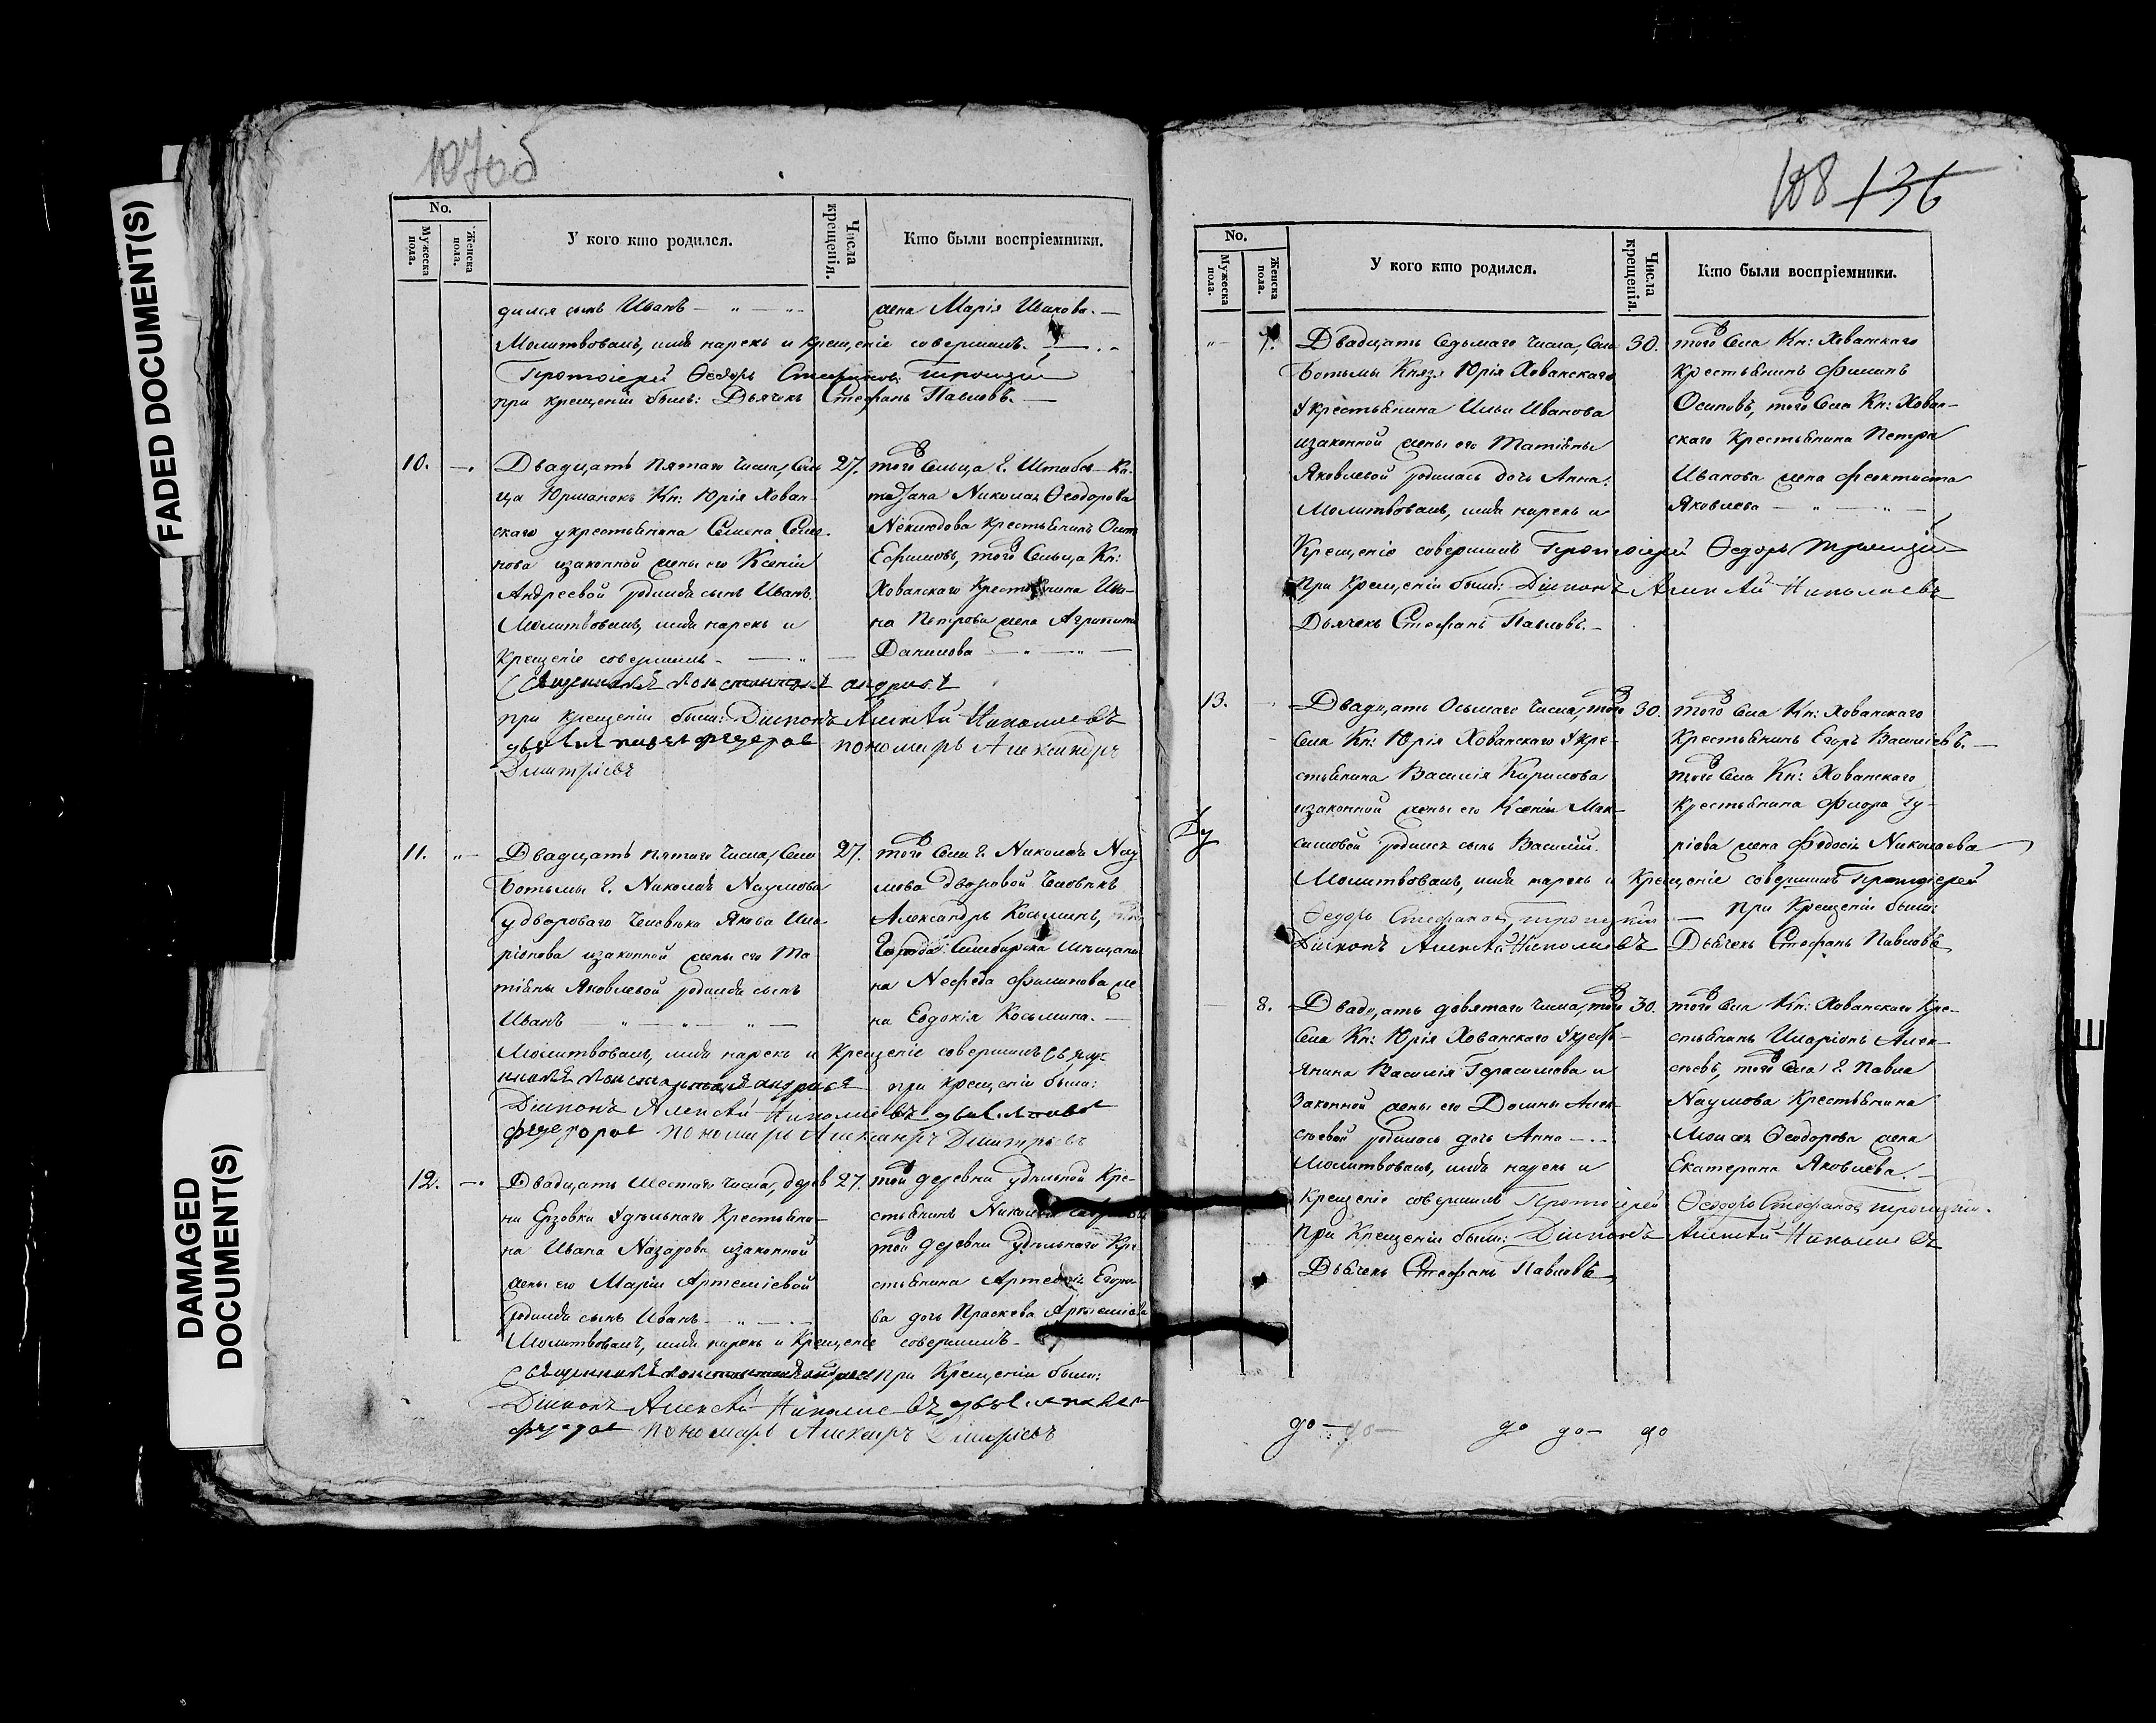 FADED DOCUMENT(S)
DAMAGED DOCUMENT(S)
107об
No.
Мужеска пола.
Женска пола.
У кого кто родился.
Числа крещенія.
Кто были воспріемники.
дился сынъ Иванъ — " — "
жена Марія Иванова. —
Молитвовалъ, имя нарекъ и крещеніе совершилъ. —
Протоіерей Ѳеодоръ Стефановъ Троицкій
при крещеніи былъ: Дьячекъ Стефанъ Павловъ. —
10. —. Двадцать пятаго числа, Сель 27. того Сельца г. Штабсъ-Ка-
ца Юрманокъ Кн: Юрія Хован-
питана Николая Ѳеодорова
скаго у крестьянина Семена Семе-
Неклюдова крестьянинъ Осип
нова изаконной жены его Ксеніи
Ефимовъ, того Сельца Кн:
Андреевой родился сынъ Иванъ.
Хованскаго крестьянина Ива-
Молитвовалъ, имя нарекъ и
на Петрова жена Агрипина
крещеніе совершилъ — " —
Данилова — " — " —
Священникъ Константинъ Андреевъ
при крещеніи были: Діаконъ Алексѣй Николаевъ
дьячекъ Павелъ Федоровъ пономарь Александръ
Дмитріевъ
11. "— Двадцать пятаго числа, Села 27. того Села г. Николая Нау
Ботьмы г. Николая Наумова
мова дворовой человѣкъ
у двороваго человѣка Якова Ила-
Александръ Косьминъ,
ріонова изаконной жены его Та-
города Симбирска мѣщани
тіяны Яковлевой родился сынъ
на Нефеда Филипова же
Иванъ — " — " — " —
на Евдокія Косьмина. —
Молитвовалъ, имя нарекъ и крещеніе совершилъ Свяще
нникъ Константинъ Андреевъ при крещеніи были:
Діаконъ Алексѣй Николаевъ дьячекъ Павелъ
Федоровъ пономарь Александръ Дмитріевъ
12. —. Двадцать шестаго числа, дерев 27. той деревни удѣльной кре-
ни Ерзовки Удѣльнаго крестьяни-
стьянинъ Николай
на Ивана Назарова изаконной
той деревни удѣльнаго кре-
жены его Маріи Артеміевой
стьянина Артемія Егоро-
родился сынъ Иванъ — " —
ва дочь Праскева Артеміева
Молитвовалъ, имя нарекъ и крещеніе совершилъ —
Священникъ Константинъ Андреевъ при Крещеніи были:
Діаконъ Алексѣй Николаевъ дьячекъ Павелъ
Федоровъ пономарь Александръ Дмитріевъ
108 136
No.
Мужеска пола.
Женска пола.
У кого кто родился.
Числа крещенія.
Кто были воспріемники.
"— 7. Двадцать седьмаго числа, Села 30. того Села Кн: Хованскаго
Ботьмы Князя Юрія Хованскаго
крестьянинъ Филипъ
у крестьянина Ильи Иванова
Осиповъ, того Села Кн: Хован-
изаконной жены его Татіяны
скаго крестьянина Петра
Яковлевой родилась дочь Анна.
Иванова жена Феоктиста
Молитвовалъ, имя нарекъ и
Яковлева — " — " —
Крещеніе совершилъ Протоіерей Ѳеодоръ Троицкій
При крещеніи были: Діаконъ Алексѣй Николаевъ
Дьячекъ Стефанъ Павловъ. —
13. Двадцать осьмаго числа, того 30. того Села Кн: Хованскаго
Села Кн: Юрія Хованскаго у кре-
крестьянинъ Егоръ Васильевъ. —
стьянина Василія Кирилова
того Села Кн: Хованскаго
изаконной жены его Ксеніи Мак-
крестьянина Флора Гу-
симовой родился сынъ Василій.
ріова жена Федосія Николаева
Молитвовалъ, имя нарекъ и крещеніе совершилъ Протоіерей
Ѳеодоръ Стефановъ Троицкій — При Крещеніи были:
Діаконъ Алексѣй Николаевъ Дьячекъ Стефанъ Павловъ
— 8. Двадцать девятаго числа, того 30. того Села Кн: Хованскаго кре-
Села Кн: Юрія Хованскаго у кресть-
стьянинъ Иларіонъ Алек-
янина Василія Герасимова и
сѣевъ, того Села г. Павла
законной жены его Домны Алек-
Наумова крестьянина
сѣевой родилась дочь Анна —
Моисея Ѳеодорова жена
Молитвовалъ, имя нарекъ и
Екатерина Яковлева. —
Крещеніе совершилъ Протоіерей Ѳеодоръ Стефановъ Троицкій.
При Крещеніи были: Діаконъ Алексѣй Николаевъ
Дьячекъ Стефанъ Павловъ
до — до — до до — до